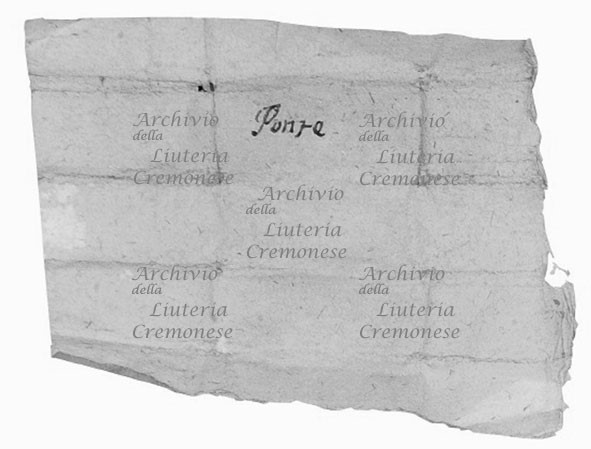 Ponte
Archivio
della
Liuteria
Cremonese
Archivio
della
Liuteria
Cremonese
Archivio
della
Liuteria
Cremonese
Archivio
della
Liuteria
Cremonese
Archivio
della
Liuteria
Cremonese